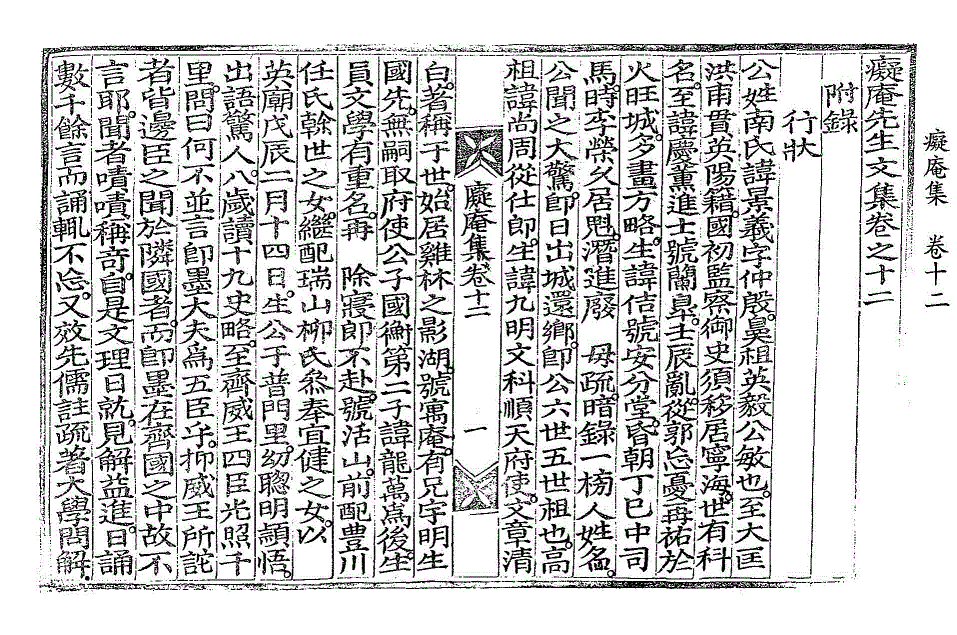 癡庵集 卷十二
癡庵先生文集卷之十二
附錄
行狀
公姓南氏諱景羲字仲殷鼻祖英毅公敏也至大匡
洪甫貫英陽籍國初監察御史須移居寧海世有科
名至諱慶薰進士號蘭皐壬辰亂從郭忘憂再祐於
火旺城多畫方略生諱佶號安分堂昏朝丁巳中司
馬時李榮久居魁潛進廢 母疏暗錄一榜人姓名
公聞之大驚卽日出城還鄉卽公六世五世祖也高
祖諱尚周從仕郎生諱九明文科順天府使文章清
癡庵集卷十二 一
白著稱于世始居雞林之影湖號寓庵有兄字明生
國先無嗣取府使公子國衡第二子諱龍萬爲後生
員文學有重名再 除寢郎不赴號活山前配豊川
任氏榦世之女繼配瑞山柳氏叅奉宜健之女以
英廟戊辰二月十四日生公子普門里幼聰明穎悟
出語驚人八歲讀十九史略至齊威王四臣光照千
里問曰何不並言卽墨大夫爲五臣乎抑威王所詑
者皆邊臣之聞於隣國者而卽墨在齊國之中故不
言耶聞者嘖嘖稱奇自是文理日就見解益進日誦
數千餘言而誦輒不忘又效先儒註疏著大學問解